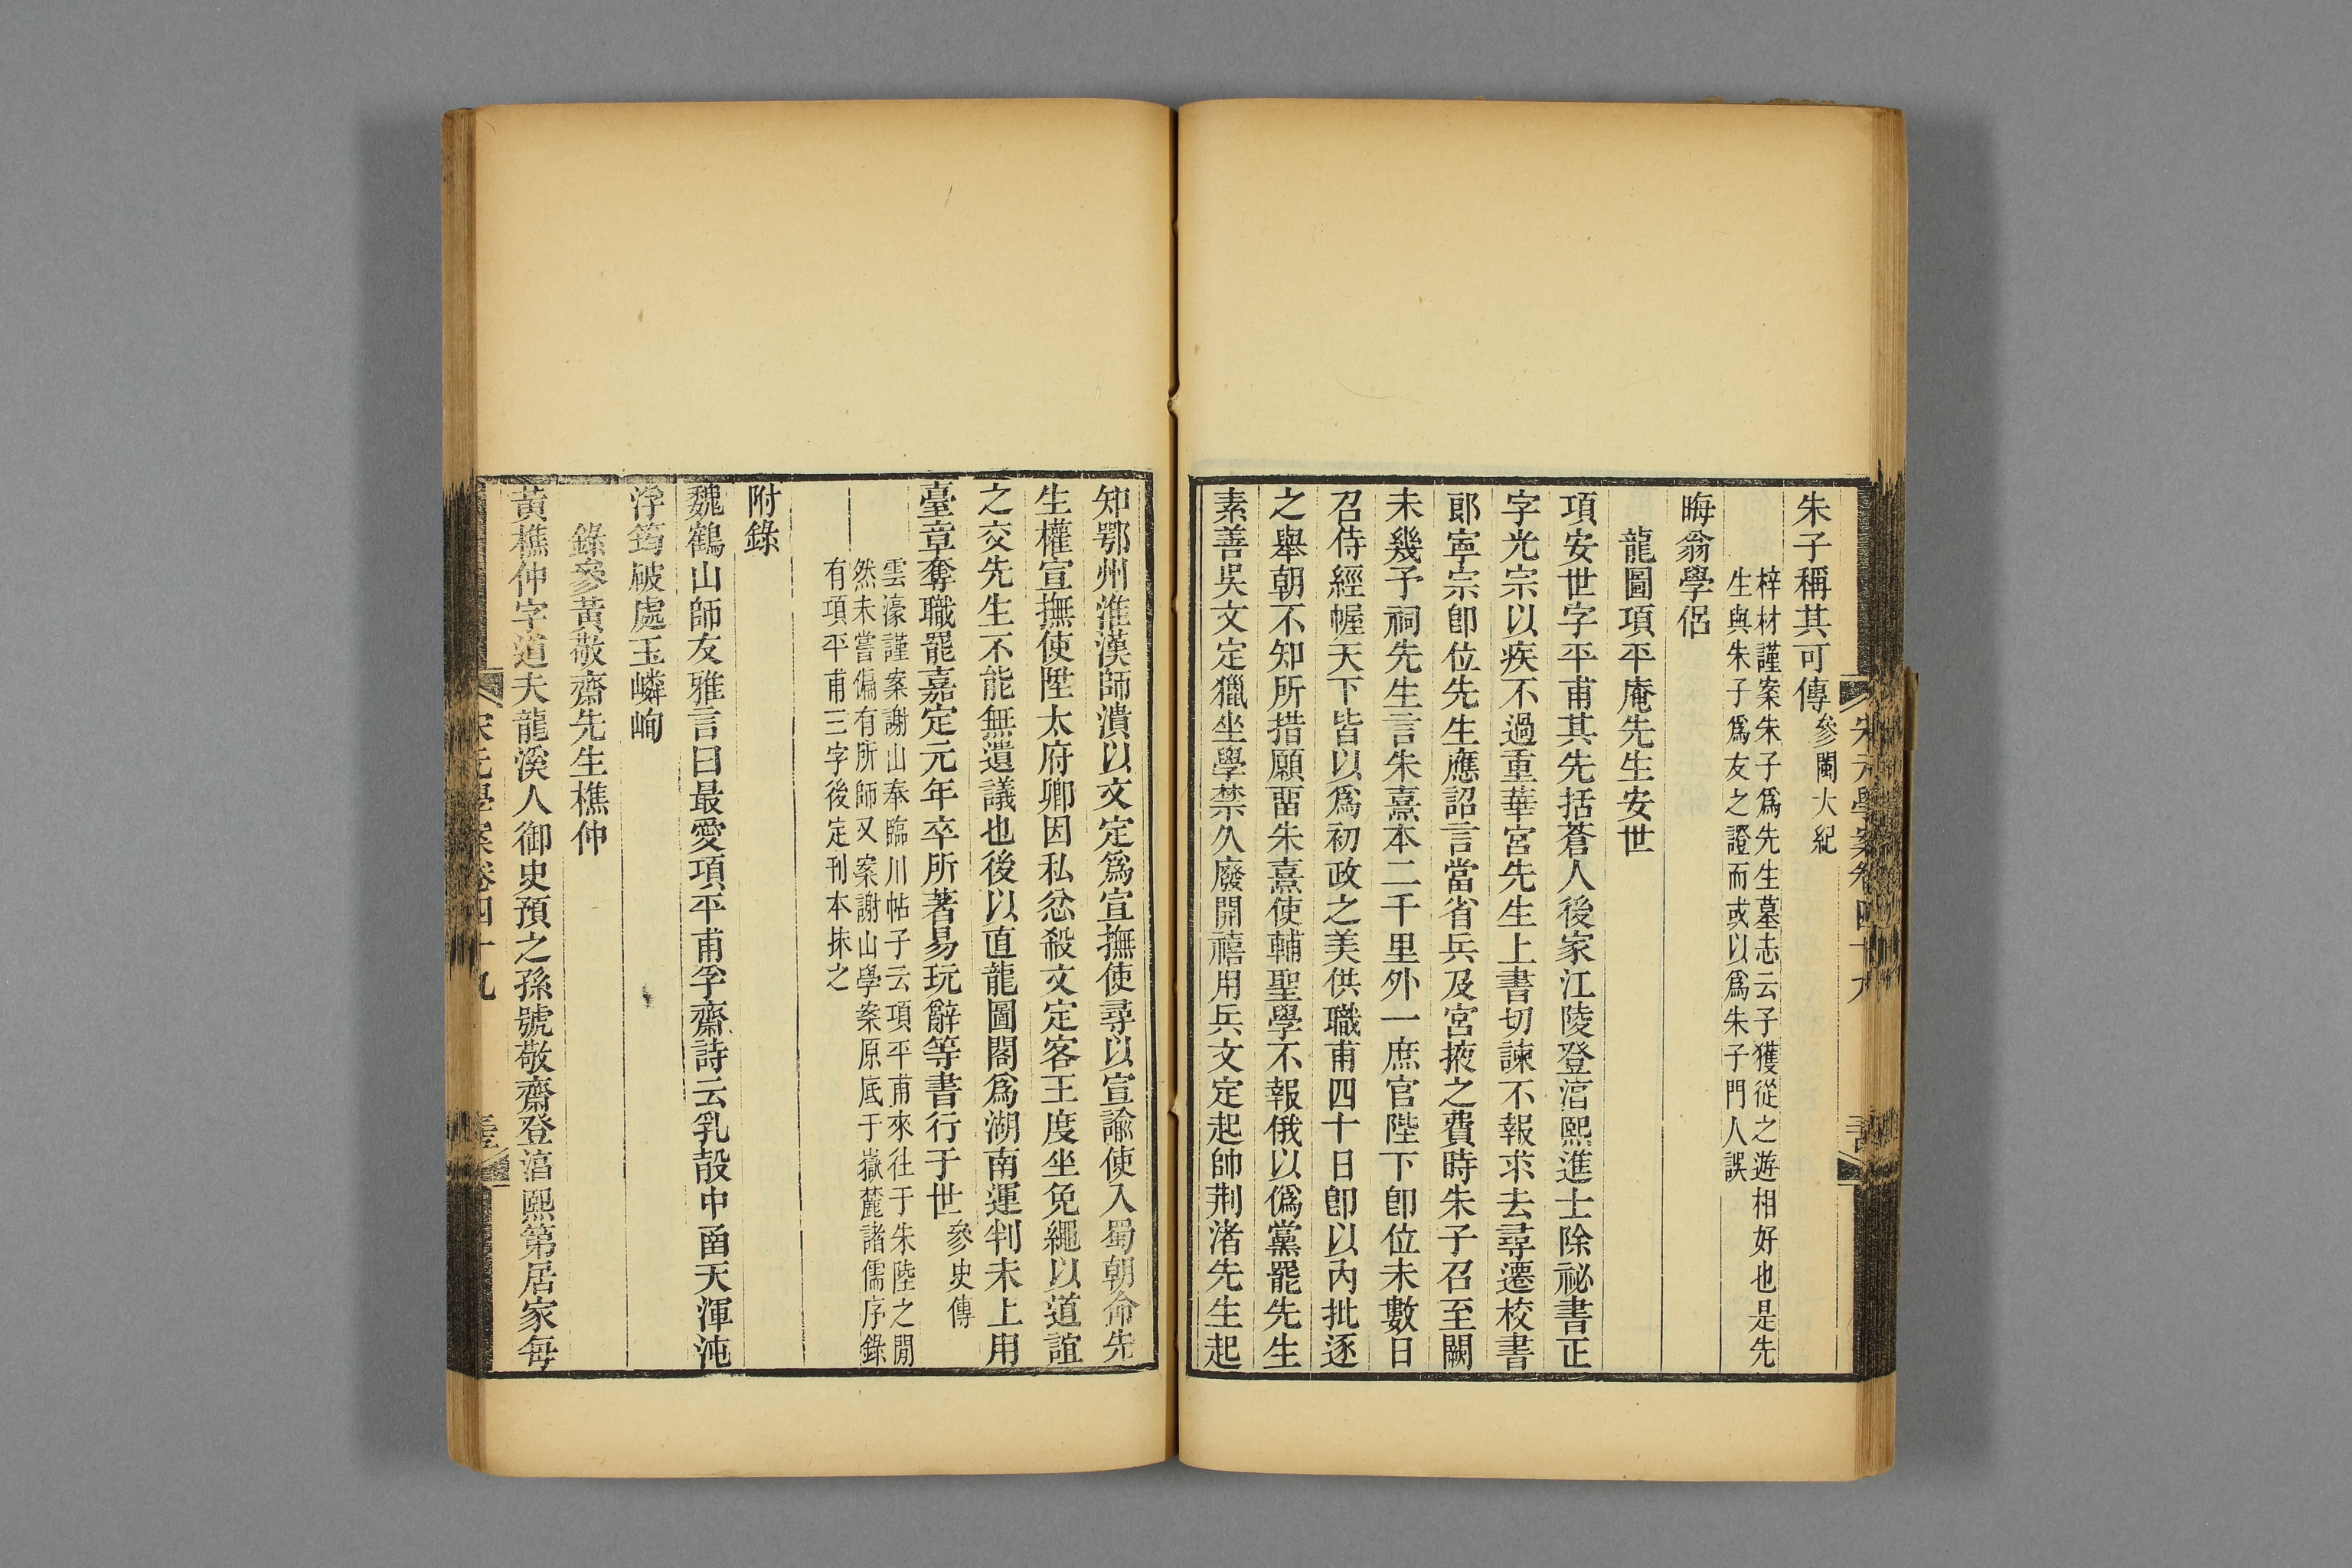 朱子稱其可傳參閩大紀
梓材謹案朱子爲先生墓志云子獲從之遊相好也是先
生與朱子爲友之證而或以爲朱子門人誤
晦翁學侶
龍圖項平庵先生安世
項安世字平甫其先括蒼人後家江陵登湻熙進士除祕書正
字光宗以疾不過重華宮先生上書切諫不報求去尋遷校書
郞寍宗卽位先生應詔言當省兵及宮掖之費時朱子召至闕
未幾予祠先生言朱熹本二千里外一庶官陛下卽位未數日
召侍經幄天下皆以爲初政之美供職甫四十日卽以內批逐
之舉朝不知所措願畱朱熹使輔聖學不報俄以僞黨罷先生
素善吳文定獵坐學禁久廢開禧用兵文定起帥荆渚先生起
知鄂州淮漢師潰以文定爲宣撫使尋以宣諭使入蜀朝命先
生權宣撫使陞太府卿因私忿殺文定客王度坐免繩以道誼
之交先生不能無遺議也後以直龍圖閣爲湖南運判未上用
臺章奪職罷嘉定元年卒所著易玩辭等書行于世參史傳
雲濠謹案謝山奉臨川帖子云項平甫來往于朱陸之閒
然未嘗偏有所師又案謝山學案原底于嶽麓諸儒序錄
有項平甫三字後定刊本抹之
附錄
魏鶴山師友雅言曰最愛項平甫孚齋詩云乳殼中函天渾沌
浮筠破處玉嶙峋
錄參黃敬齋先生樵仲
黃樵仲字道夫龍溪人御史預之孫號敬齋登湻熙第居家每
宋元學案卷四十九